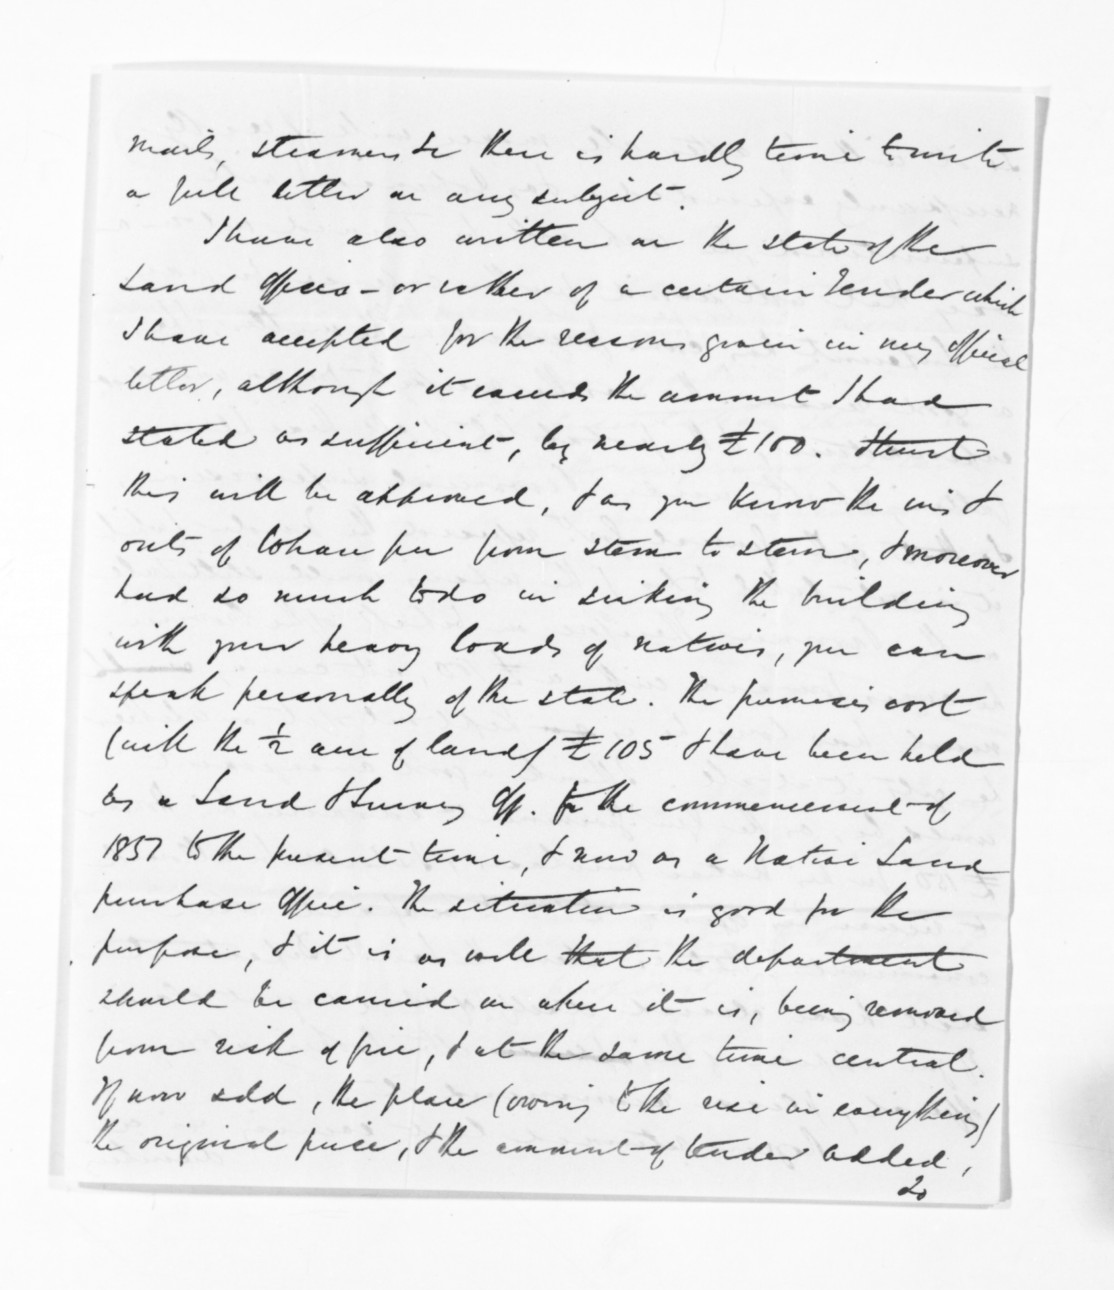 mails, steamers &c there is hardly time to write
a full letter on any subject.
I have also written on the state of the
Land Office - or rather of a certain Tender which
I have accepted for the reasons given in my official
letter, although it exceeds the amount I had
stated as sufficient, by nearly £100. I trust
this will be approved, & as you know the ins &
outs of from stem to stern, & moreover
had so much to do in sinking the building
with your heavy loads of natives, you can
speak personally of the state. The premises cost
(with the ½ acre of land) £105 & have been held
as a Land & Survey Off. fr the commencement of
1857 to the present time, & now as a Native Land
purchase Office. The situation is good for the
purpose, & it is as well that the department
should be carried on where it is, being removed
from risk of fire, & at the same time central.
If now sold, the place (owing to the rise in everything)
the original price, & the amount of tender added,